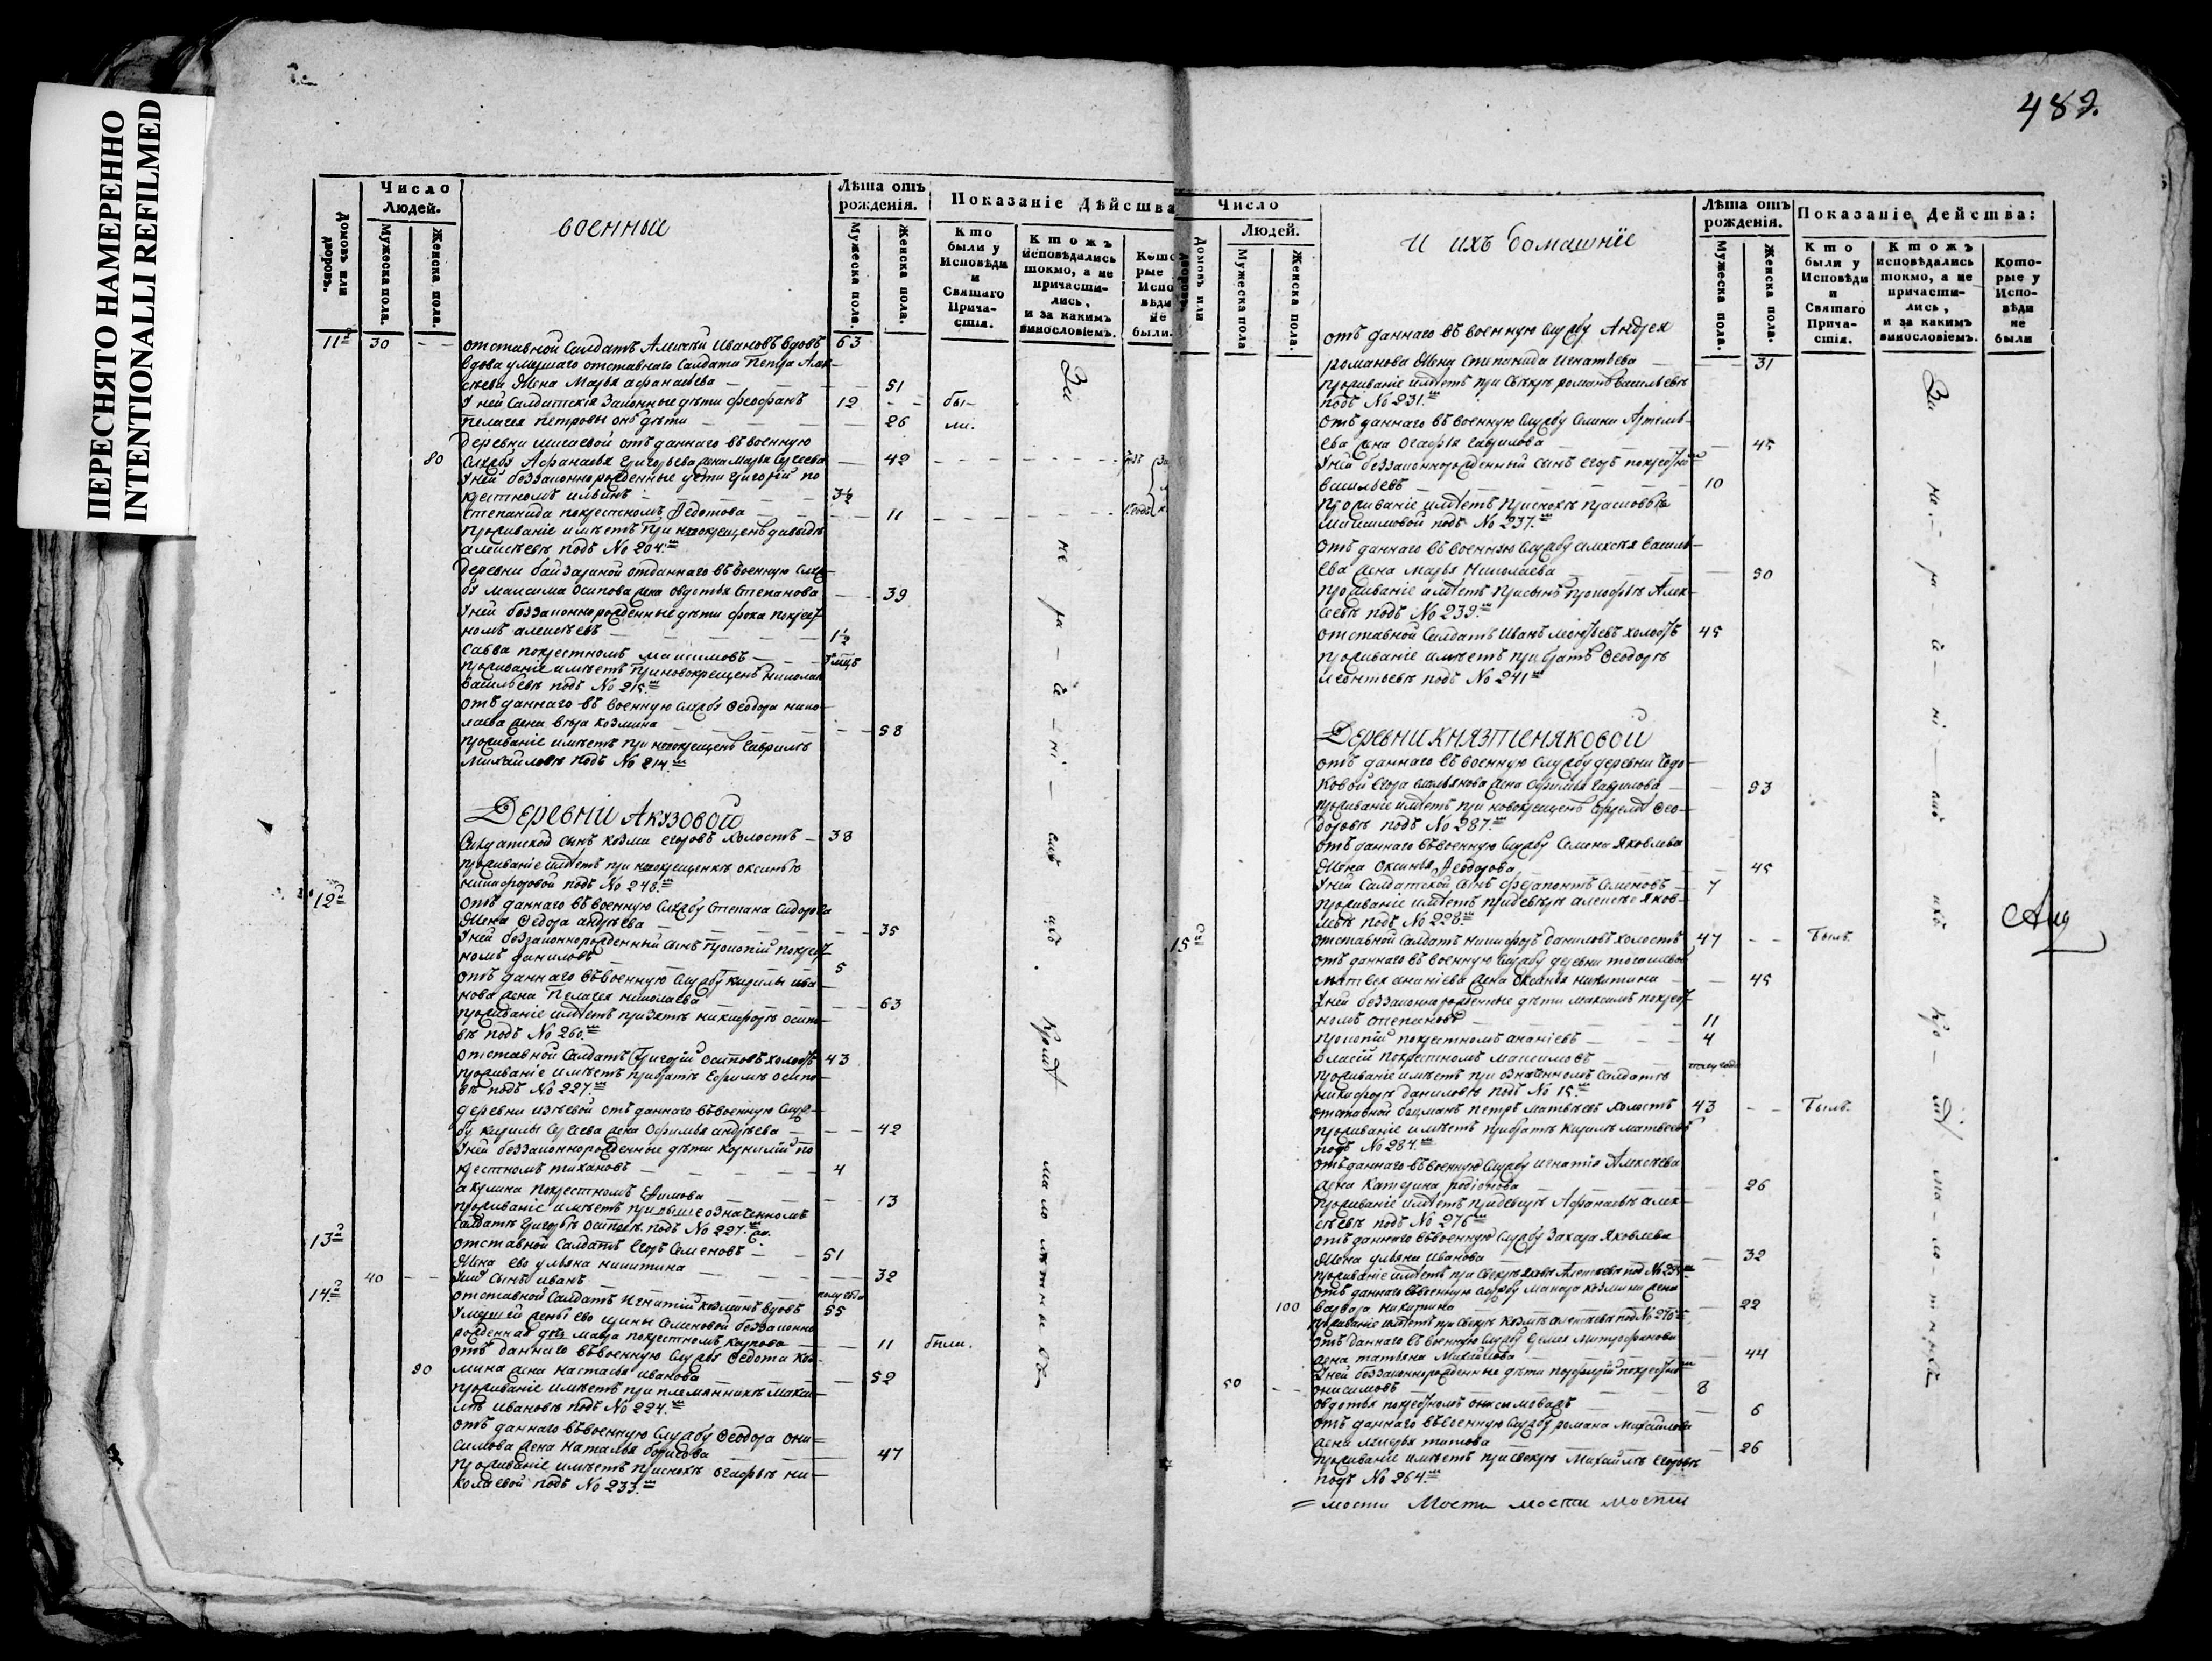 ПЕРЕСНЯТО НАМЕРЕННО
INTENTIONALLI REFILMED
482.
Домовъ или дворовъ.
Число Людей.
Мужеска пола.
Женска пола.
военныі
Лѣта отъ рожденія.
Мужеска пола.
Женска пола.
Показаніе Дѣйства
Кто были у Исповѣди и Святаго Причастія.
Ктожъ исповѣдались токмо, а не причастились, и за какимъ винословіемъ.
Которые Исповѣди не были.
11й 30 отставной Салдатъ Алексѣй Ивановъ вдовъ 63
вдова умершаго отставнаго Салдата Петра Алек-
сѣева Жена Марья афанасьева 51
У ней Салдатскія Законные дѣти феофанъ 12 бы-
пелагея петровы дѣти 26 ли.
деревни отъ даннаго въ военную
80 службу Афанасья Григорьева жена Марья Сергеева 42
У ней беззаконнорожденные дети григорій по
крестномъ ильинъ 3½
степанида покрестномъ Федотова 11
проживаніе имѣетъ при новокрещенѣ давыдѣ
алексѣевѣ подъ No 204.мъ
деревни отданнаго въ военную служ-
бу максима Осипова жена овдотья Степанова 39
У ней беззаконнорожденные дѣти фока покрест-
номъ алексѣевъ 1½
савва покрестномъ максимовъ
проживаніе имѣетъ при новокрещенѣ николаѣ
васильевѣ подъ No 215.мъ
отъ даннаго въ военную службу Феодора нико-
лаева жена вера козмина 58
проживаніе имѣетъ при новокрещенѣ гаврилѣ
михайловѣ подъ No 214.мъ
Деревни Акузовой
Салдатской сынъ козма егоровъ холостъ 38
проживаніе имѣетъ при новокрещенкѣ оксинье
никифоровой подъ No 248.мъ
12й отъ даннаго въ военную службу Степана Сидорова
Жена Федора андреева 35
У ней беззаконнорожденный сынъ Прокопій покрест-
номъ даниловъ 5
отъ даннаго въ военную службу кирилы ива-
нова жена Пелагея николаева 63
проживаніе имѣетъ при зятѣ никифорѣ осипо-
вѣ подъ No 260.мъ
отставной Салдатъ Григорій осиповъ холостъ 43
проживаніе имѣетъ при братѣ Ефимѣ осипо-
вѣ подъ No 227.мъ
деревни отъ даннаго въ военную служ-
бу кирилы Сергеева жена Офимья андреева 42
У ней беззаконнорожденные дѣти Корнилій по
крестномъ тихановъ 4
акулина покрестномъ Ефимова 13
проживаніе имѣетъ при выше означенномъ
салдатѣ григорьѣ осиповѣ подъ No 227.мъ
13й отставной Салдатъ Егоръ Семеновъ 51
Жена ево ульяна никитина 32
40 У нихъ сынъ иванъ полугода
14й отставной Салдатъ Игнатій козминъ вдовъ 55
Умершей жены ево ирины Семеновой беззаконно
рожденная дочь марѳа покрестномъ Карпова 11 были.
отъ даннаго въ военную службу Федота Коз-
90 мина жена настасья иванова 52
проживаніе имѣетъ при племянникѣ макси-
мѣ ивановѣ подъ No 224.мъ
отъ даннаго въ военную службу Феодора они-
симова жена наталья борисова 47
проживаніе имѣетъ при снохѣ огафьѣ ни-
колаевой подъ No 233.мъ
За не ра-де-ні-емъ ихъ. Кромѣ малолѣтныхъ
Домовъ или дворовъ.
Число Людей.
Мужеска пола
Женска пола.
И ихъ домашніе
Лѣта отъ рожденія.
Мужеска пола.
Женска пола.
Показаніе Действа:
Кто были у Исповѣди и Святаго Причастія.
Ктожъ исповѣдались токмо, а не причастились, и за какимъ винословіемъ.
Которые у Исповѣди не были
отъ даннаго въ военную службу Андрея
романова Жена Степанида Игнатьева 31
проживаніе имѣетъ при свекрѣ романѣ васильевѣ
подъ No 231.мъ
отъ даннаго въ военную службу Семена Артемь-
ева жена Огафья гаврилова 45
У ней беззаконнорожденный сынъ егоръ покрестном
васильевъ 10
проживаніе имѣетъ при снохѣ прасковьѣ
максимовой подъ No 237.мъ
отъ даннаго въ военную службу алексѣя василь-
ева жена марья николаева 50
проживаніе имѣетъ при сынѣ Прокофьѣ Алек-
сеевѣ подъ No 239.мъ
отставной Салдатъ Иванъ леонтьевъ холостъ 45
проживаніе имѣетъ при братѣ Феодорѣ
леонтьевѣ подъ No 241мъ
Деревни князтеняковой
отъ даннаго въ военную службу деревни
егора емельянова жена Офимья гаврилова 53
проживаніе имѣетъ при новокрещенѣ Фео-
доровѣ подъ No 287.мъ
отъ даннаго въ военную службу Семена Яковлева
Жена Оксинья Феодорова 45
У ней Салдатской сынъ ферапонтъ Семеновъ 7
проживаніе имѣетъ при деверѣ алексѣе яков-
левѣ подъ No 228.мъ
15й отставной Салдатъ никифоръ даниловъ холостъ 47 былъ.
отъ даннаго въ военную службу деревни
матвея ананіева жена Оксинья никитина 45
У ней беззаконнорожденные дѣти максимъ покрест-
номъ степановъ 11
прокопій покрестномъ ананіевъ 4
власій покрестномъ максимовъ полугода
проживаніе имѣетъ при означенномъ Салдатѣ
никифорѣ даниловѣ подъ No 15.мъ
отставной боцманъ петръ матвѣевъ холостъ 43 былъ.
проживаніе имѣетъ при братѣ Кирилѣ матвеевѣ
подъ No 284.мъ
отъ даннаго въ военную службу игнатія Алексѣева
жена Катерина родіонова 26
проживаніе имѣетъ при деверѣ Афанасьѣ алек-
сѣевѣ подъ No 276мъ
отъ даннаго въ военную службу Захара Яковлева
Жена ульяна Иванова 32
проживаніе имѣетъ при свекрѣ яковѣ Алексѣевѣ под No
отъ даннаго въ военную службу макара козмина жена
100 варвара никитина 22
проживаніе имѣетъ при свекрѣ козмѣ алексѣевѣ под No 276
отъ даннаго въ военную службу митрофанова
жена татьяна Михайлова 44
У ней беззаконнорожденные дѣти порфирій покрестном
50 онисимовъ 8
овдотья покрестномъ 6
отъ даннаго въ военную службу романа михайлова
жена титова 26
проживаніе имѣетъ при свекрѣ михайлѣ егоровѣ
подъ No 264.мъ
За не-ра-де-ні-емъ ихъ кро-мѣ ма-ло-лѣт-ныхъ
= мости Мости мости мости